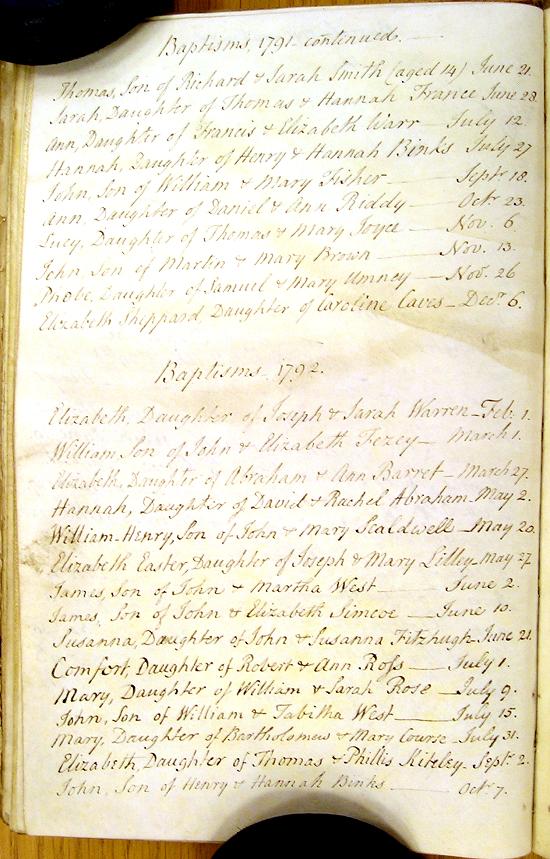 Baptisms, 1791 continued.
Thomas, Son of Richard & Sarah Smith (aged 14) June 21.
Sarah, Daughter of Thomas & Hannah France June 28.
Ann, Daughter of Francis & Elizabeth Warr — July 12
Hannah, Daughter of Henry & Hannah Binks July 27
John, Son of William & Mary Fisher — Sept 18.
Ann, Daughter of Daniel & Ann Biddy — Octr 23.
Lucy, Daughter of Thomas & Mary Joyce — Nov. 6
John Son of Martin & Mary Brown — Nov. 13.
Phœbe, Daughter of Samuel & Mary Umney — Nov. 26
Elizabeth Sheppard, Daughter of Caroline Caves — Decr 6.
Baptisms 1792.
Elizabeth, Daughter of Joseph & Sarah Warren — Feb: 1.
William Son of John & Elizabeth Fezey — March 1.
Elizabeth, Daughter of Abraham & Ann Barret — March 27.
Hannah, Daughter of David & Rachel Abraham — May 2.
William-Henry, Son of John & Mary Scaldwell — May 20.
Elizabeth Easter, Daughter of Joseph & Mary Lilley May 27
James, Son of John & Martha West — June 2.
James, Son of John & Elizabeth Simcoe — June 10.
Susanna, Daughter of John & Susanna Fitzhugh June 21.
Comfort, Daughter of Robert & Ann Ross — July 1.
Mary, Daughter of William & Sarah Rose — July 9.
John, Son of William & Tabitha West — July 15.
Mary, Daughter of Bartholomew & Mary Course — July 31.
Elizabeth, Daughter of Thomas & Phillis Kiteley. Sept. 2.
John, Son of Henry & Hannah Binks — Octr 7.